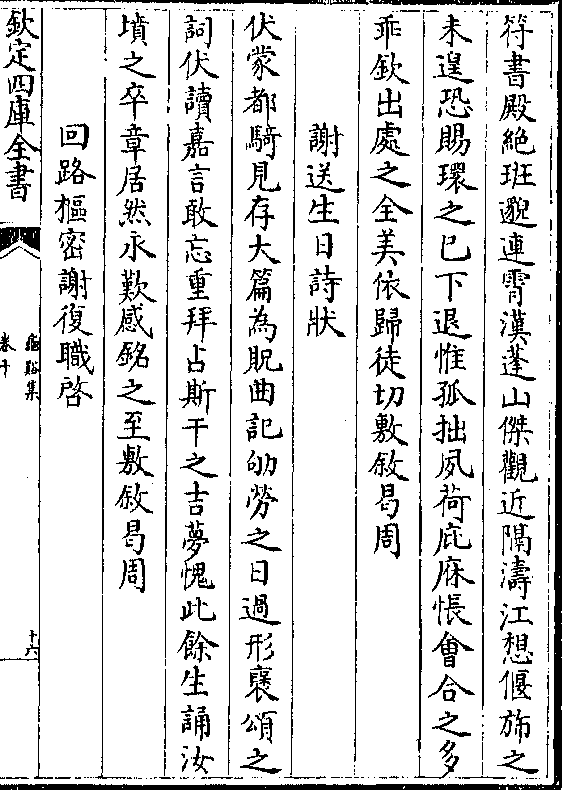 符書殿絶班邈連霄漢蓬山傑觀近隔濤江想偃斾之
未遑恐賜環之已下退惟孤拙夙荷庇庥悵㑹合之多
乖欽出處之全美依歸徒切敷敘曷周
謝送生日詩狀
伏蒙都騎見存大篇為貺曲記劬勞之日過形襃頌之
詞伏讀嘉言敢忘重拜占斯干之吉夢愧此餘生誦汝
墳之卒章居然永歎感銘之至敷敘曷周
回路樞密謝復職啓
欽定四庫全書
卷十
十六